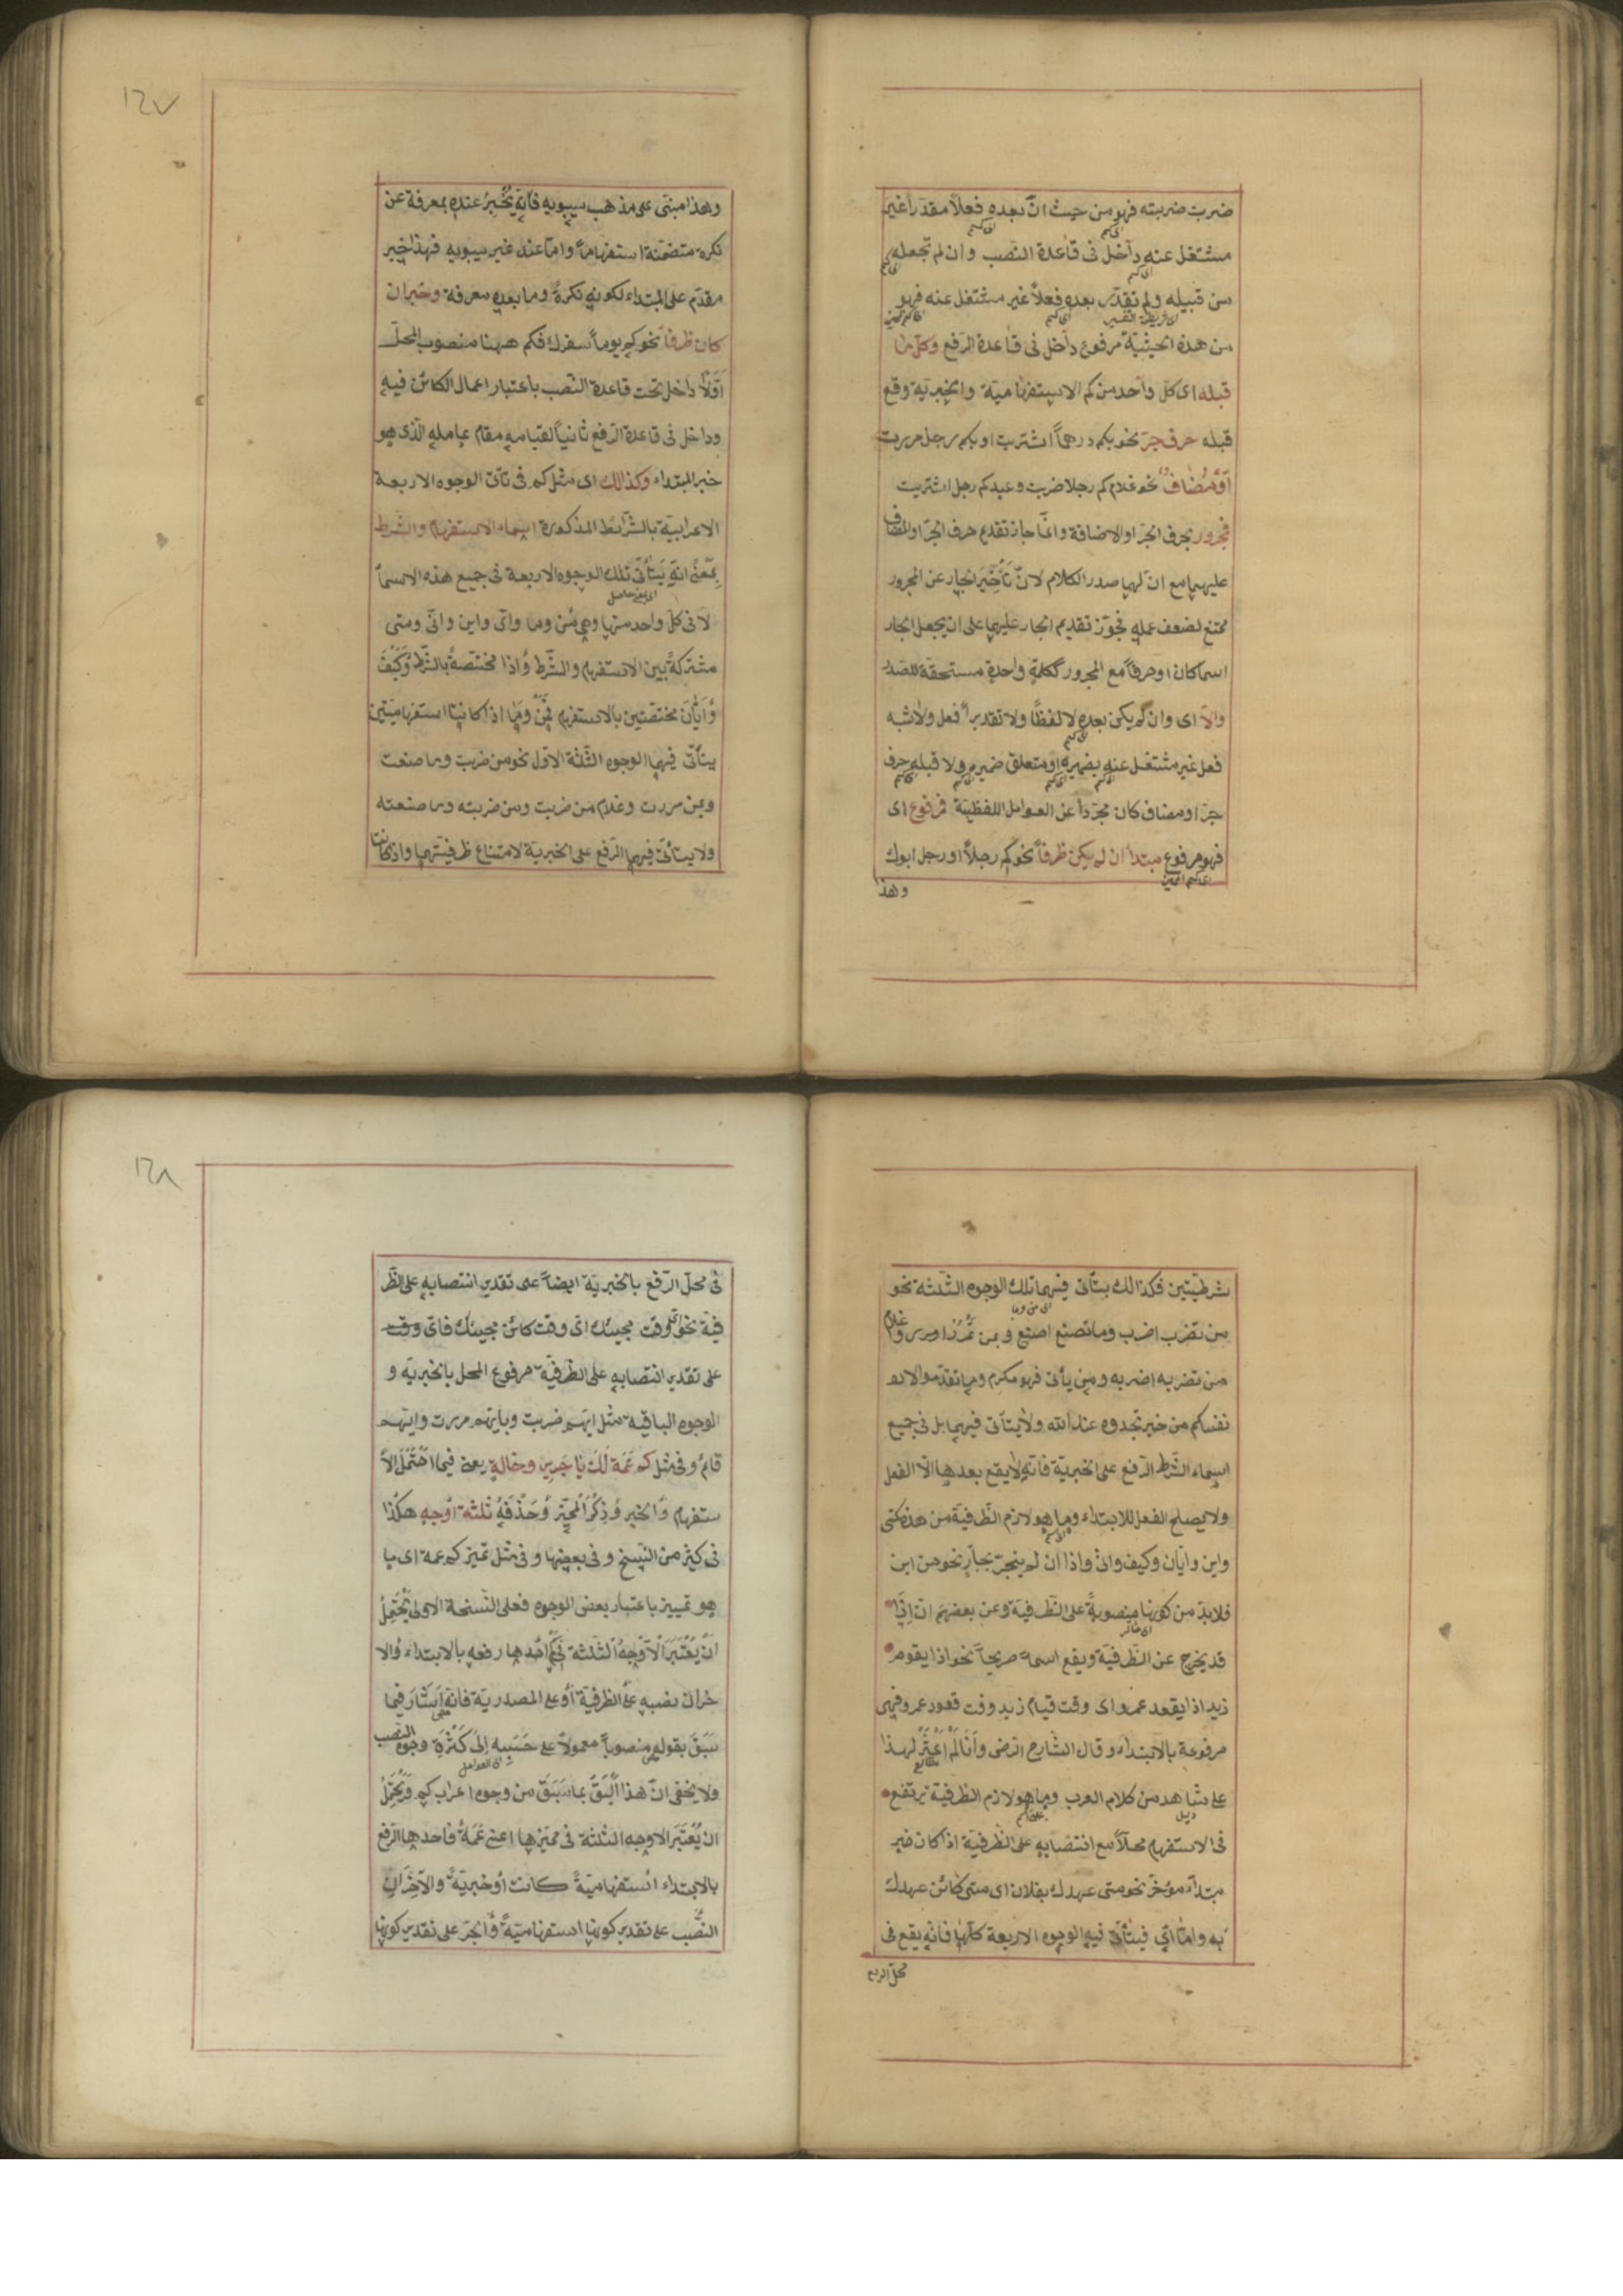 ضربت ضربته فهو من حيث انّ بعده فعلاً مقدراً غير
مشتغل عنه داخل فى قاعدة النصب وان لم تجعله
من قبيله ولم تقدّر بعده فعلاً غير مشتغل عنه فهو
من هذه الحيثيّة مرفوع داخل فى قاعدة الرفع وكلّ ما
قبله اى كل واحد من كم الاستفهامية والخبرية وقع
قبله حرف جرّ نحو بكم درهماً اشتريت او بكم رجل مررت
اَوْ مُضاف نحو غلام كم رجلا ضربت وعبد كم رجل اشتريت
فمجرور بحرف الجرّ او الاضافة وانّما جاز تقدم حرف الجرّ او المضاف
عليهما مع انّ لهما صدر الكلام لانّ تأخير الجار عن المجرور
ممتنع لضعف عمله فجوّز تقديم الجار عليهما على ان يجعل الجار
اسما كان او حرفاً مع المجرور ككلمة واحدة مستحقة للصدر
والّا اى وان لم يكن بعده لا لفظاً ولا تقديراً فعل ولا شبه
فعل غير مشتغل عنه بضميره او متعلق ضميره ولا قبله حرف
جرّ او مضاف كان مجرّداً عن العوامل اللفظيّة فمرفوع اى
فهو مرفوع مبتدأ ان لم يكن ظرفاً نحو كم رجلاً او رجل ابوك
وهذا
١٢٧
وهذا مبنى على مذهب سيبويه فانّه يُخبرُ عنده بمعرفة عن
نكرة متضمّنة استفهاماً وامّا عند غير سيبويه فهذا خبر
مقدّم على المبتداء لكونه نكرةً وما بعده معرفة وخبر ان
كان ظرفاً نحو كم يوماً سفرك فكم ههنا منصوب المحلّ
اَوّلاً داخل تحت قاعدة النّصب باعتبار اعمال الكائن فيه
وداخل فى قاعدة الرّفع ثانياً لقيامه مقام عامله الّذى هو
خبر المبتداء وكذالك اى مثل كم فى تأتى الوجوه الاربعة
الاعرابيّة بالشّرائط المذكورة اسماء الاستفهام والشّرط
بمعنى انّه يتأتّى تلك الوجوه الاربعة فى جميع هذه الاسماً
لا فى كلّ واحد منها وهى مَن وما واىّ واين وانّى ومتى
مشتركةً بين الاستفهام والشّرط وَاذا مختصّةً بالشّرط وَكَيْفَ
وَاَيَّانَ مختصّتين بالاستفهام فَمَنْ وَمَا اذا كانتا استفهاميّتين
يتأتّى فيهما الوجوه الثّلثة الاوّل نحو من ضربت وما صنعت
وبمن مررت وغلام من ضربت ومن ضربته وما صنعته
ولا يتأتّى فيهما الرّفع على الخبريّة لامتناع ظرفيّتهما واذا كانتا
شرطيّتين فكذالك يتأتى فيهما تلك الوجوه الثّلثة نحو
من تضرب اضرب وما تصنع اصنع وبمن تَمْرُرْ امرر وغلام
من تضربه اضربه ومن يأتى فهو مكرم وما تقدّموا لانـ
نفسكم من خير تجدوه عند الله ولا يتأتى فيهما بل فى جميع
اسماء الشّرط الرّفع على الخبريّة فانّه لا يقع بعدها الّا الفعل
ولا يصلح الفعل للابتداء وما هو لازم الظّرفيّة من هذه كمتى
واين وايّان وكيف وانّى واذا ان لم ينجرّ بجارٍ نحو من اين
فلابدّ من كونها منصوبةً على الظّرفيّة وعن بعضهم انّ اذا
قد يخرج عن الظّرفيّة ويقع اسماً صريحاً نحو اذا يقوم
زيد اذا يقعد عمرو اى وقت قيام زيد وقت قعود عمرو فهى
مرفوعة بالابتداء وقال الشّارح الرضى وَاَنَا لَمْ اَعْثُرْ لهذا
على شاهد من كلام العرب وما هو لازم الظرفية يرتفع
فى الاستفهام محلّاً مع انتصابه على الظّرفيّة اذا كان خبر
مبتدأ مؤخّر نحو متى عهدك بفلان اى متى كائن عهدك
به وامّا اىّ فيتأتّى فيه الوجوه الاربعة كلّها فانّه يقع فى
محلّ الرفع
١٢٨
فى محلّ الرّفع بالخبريّة ايضاً على تقدير انتصابه على الظّر
فيّة نحو اىّ وقت مجيئك اى وقت كائن مجيئك فاىّ وقت
على تقدير انتصابه على الظّرفيّة مرفوع المحل بالخبريّة و
الوجوه الباقية مثل ايّهم ضربت وبايّهم مررت وايّهم
قائم وفى مثل كم عَمّة لَكَ يا جَرير وخالة يعنى فيما احْتَمَلَ الا
ستفهام وَالخبر وَذِكْرَ الْمُمَيّز وَحَذْفَهُ ثلثة اَوْجه هكذا
فى كثير من النّسخ وفى بعضها وفى مثل تميز كم عمة اى ما
هو تمييز باعتبار بعض الوجوه فعلى النّسخة الاولى يَحْتَمِلُ
اَنْ يُعْتَبَرَ الْاَوْجهُ الثّلثة فى كَمْ اَحَدُها رفعه بالابتداء وَالا
خران نصبه على الظرفيّة اَوْ على المصدريّة فانّه اَشَارَ فيما
سَبَقَ بقوله منصوباً معمولاً على حَسَبِهِ اِلَى كَثْرَةِ وجوه النّصب
ولا يخفى انّ هذا اَلْيَقُ بما سَبَقَ من وجوه اعراب كم وَيَحْتَمِلُ
ان يُعْتَبَرَ الاوجه الثلثة فى مميّزها اعنى عَمَةٌ فاحدها الرّفع
بالابتداء استفهاميّةً كانت اَوْ خبريّةً والآخَرَانِ
النّصْب على تقدير كونها استفهاميّةً وَالجرّ على تقدير كونها